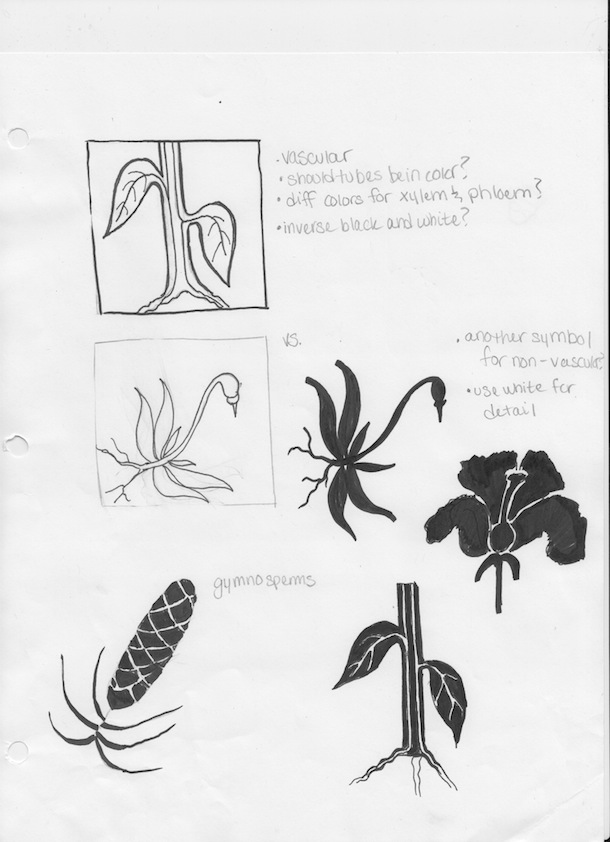 · vascular
· should tubes be in color?
· diff colors for xylem & phloem?
· inverse black and white?
vs.
· another symbol
for non-vascular?
· use white for
detail
gymnosperms